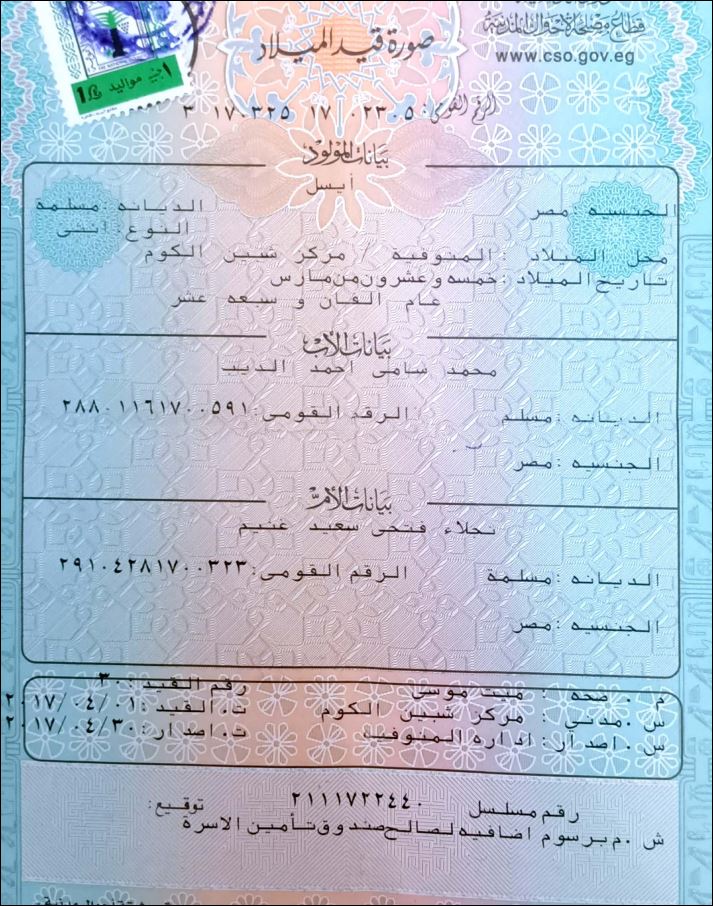 قطاع مصلحة الأحوال المدنية
صورة قيد الميلاد
www.cso.gov.eg
١ج مواليد
الرقم القومى: ٣ ١٧٠٣٢٥ ١٧ ٠٢٣٠٥
بيانات المولود
أيسل
الجنسيه :مصر الديانه :مسلمة
النوع :انثى
محل الميلاد : المنوفية / مركز شبين الكوم
تاريخ الميلاد :خمسه وعشرون من مارس
عام الفان و سبعه عشر
بيانات الأب
محمد سامى احمد الديب
الديانه :مسلم الرقم القومى :٢٨٨٠١١٦١٧٠٠٥٩١
الجنسيه :مصر
بيانات الأم
نجلاء فتحى سعيد غنيم
الديانه :مسلمة الرقم القومى :٢٩١٠٤٢٨١٧٠٠٣٢٣
الجنسيه :مصر
م . صحه : ميت موسى رقم القيد :٣٠
س .مدني : مركز شبين الكوم ت. القيد :٢٠١٧/٠٤/٠١
س . اصدار : اداره المنوفية ت. اصدار :٢٠١٧/٠٤/٣٠
رقم مسلسل ٢١١١٧٢٢٤٤٠ توقيع:
ش .م برسوم اضافيه لصالح صندوق تأمين الاسرة